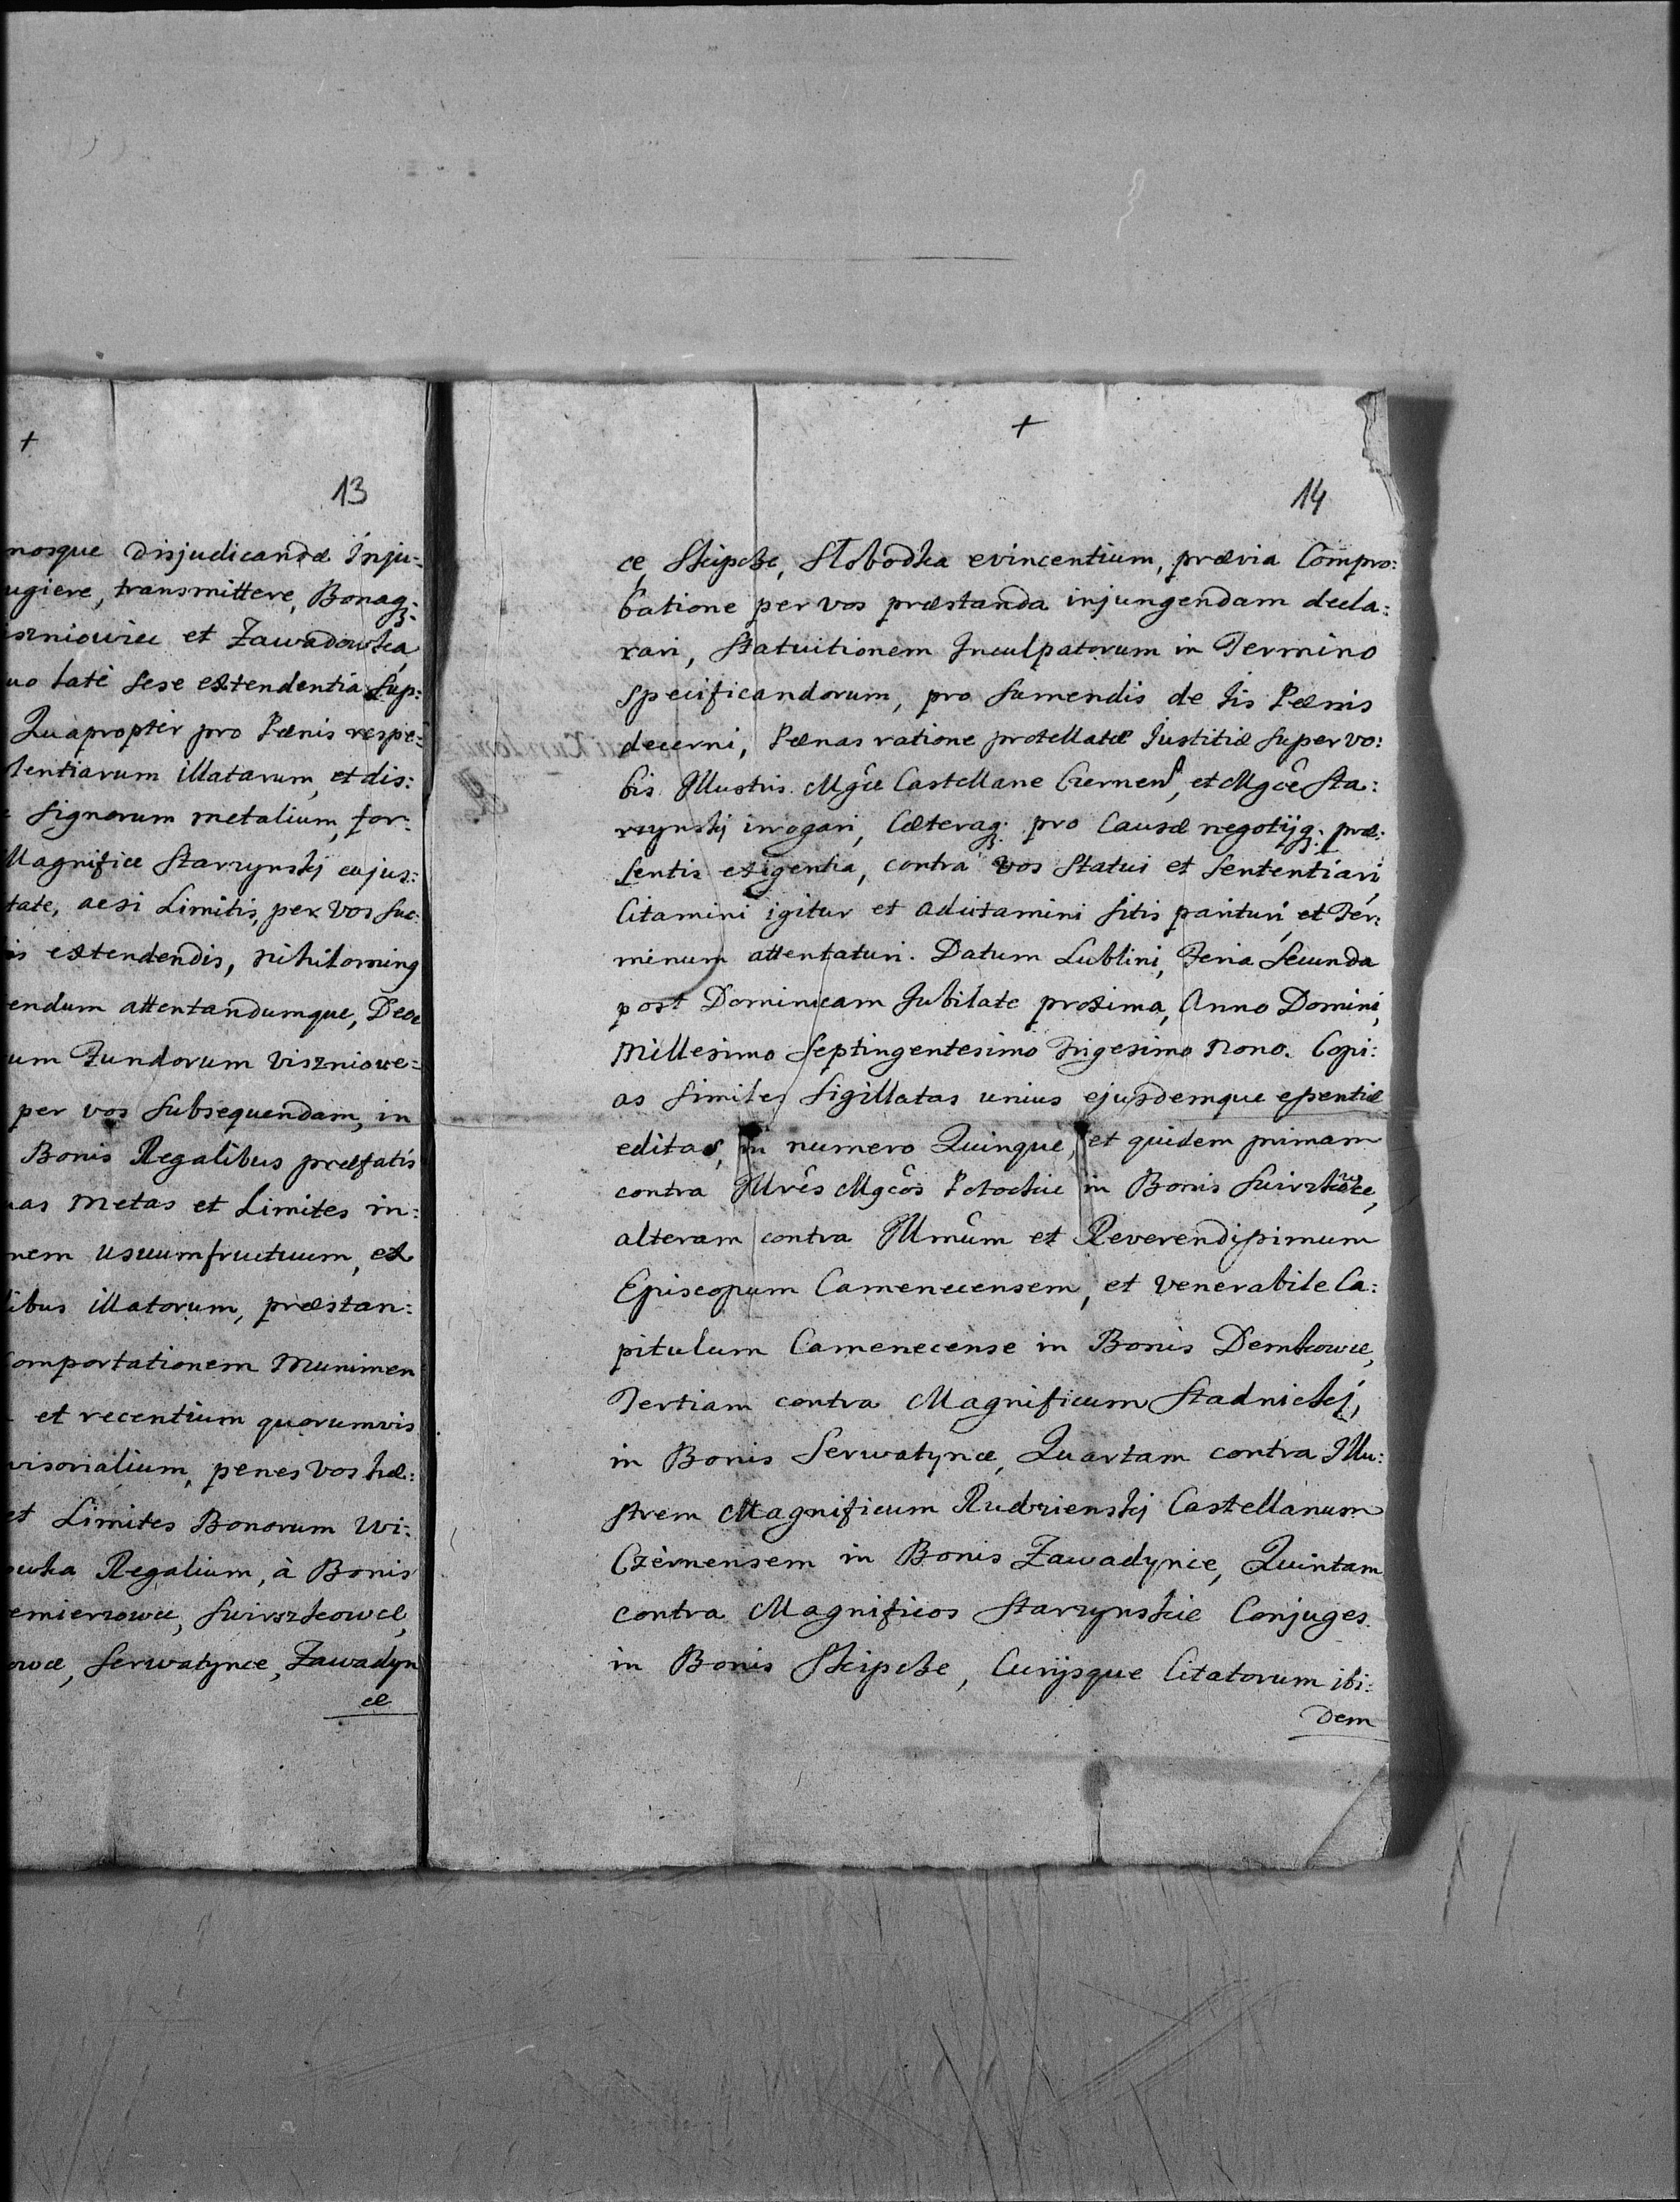 +
13
nosque disjudicandæ Inju:
ugiere, transmittere, Bonaq:
iszniowiec et Zawadowka,
uo latè sese extendentia Sup:
Quapropter pro Pænis respe:
lentiarum illatarum, et dis:
signorum metalium, for:
Magnifice Starzynskj cujus:
tate, acsi Limitis, per Vos suc:
is extendendis, nihilominq
endum attentandumque, Dece
um Fundorum Viszniowe:
per vos subsequendam, in
Bonis Regalibus præfatis
uas metas et Limites in:
nem usuumfructuum, ex
libus illatorum, præstan:
Comportationem Munimen
et recentium quorumvis
visorialium, penes Vos hæ:
et Limites Bonorum Wi:
owka Regalium, à Bonis
emierzowce, Swirszkowce,
owce, Serwatynce, Zawadyn
ce
+
14
ce, Skipcze, Slobodka evincentium, prævia Compro:
batione per vos præstanda injungendam decla:
rari, Statuitionem Inculpatorum in Termino
specificandorum, pro sumendis de Iis Pænis
decerni, Pænas ratione protellatæ Iustitiæ super vo:
bis Illustris Mgce Castellane Czernen, et Mgce Sta:
rzynskj irrogari, Cæteraq: pro Causæ negotijq: præ:
sentis exigentia, contra vos Statui et Sententiari,
Citamini igitur et adcitamini sitis parituri, et Ter:
minum attentaturi. Datum Lublini, Feria Secunda
post Dominicam Jubilate proxima, Anno Domini,
Millesimo Septingentesimo Trigesimo Nono. Copi:
as similes sigillatas unius ejusdemque essentiæ
editas, in numero Quinque, et quidem primam
contra Illres Mgcos Potockie in Bonis Swirzkowce,
alteram contra Illmum et Reverendissimum
Episcopum Camenecensem, et Venerabile Ca:
pitulum Camenecense in Bonis Demkowce,
Tertiam contra Magnificum Stadnickj,
in Bonis Serwatynce, Quartam contra Illu:
strem Magnificum Rudzienskj Castellanum
Czernensem in Bonis Zawadynce, Quintam
contra Magnificos Starzynskie Conjuges
in Bonis Skipcze, Curijsque Citatorum ibi:
dem